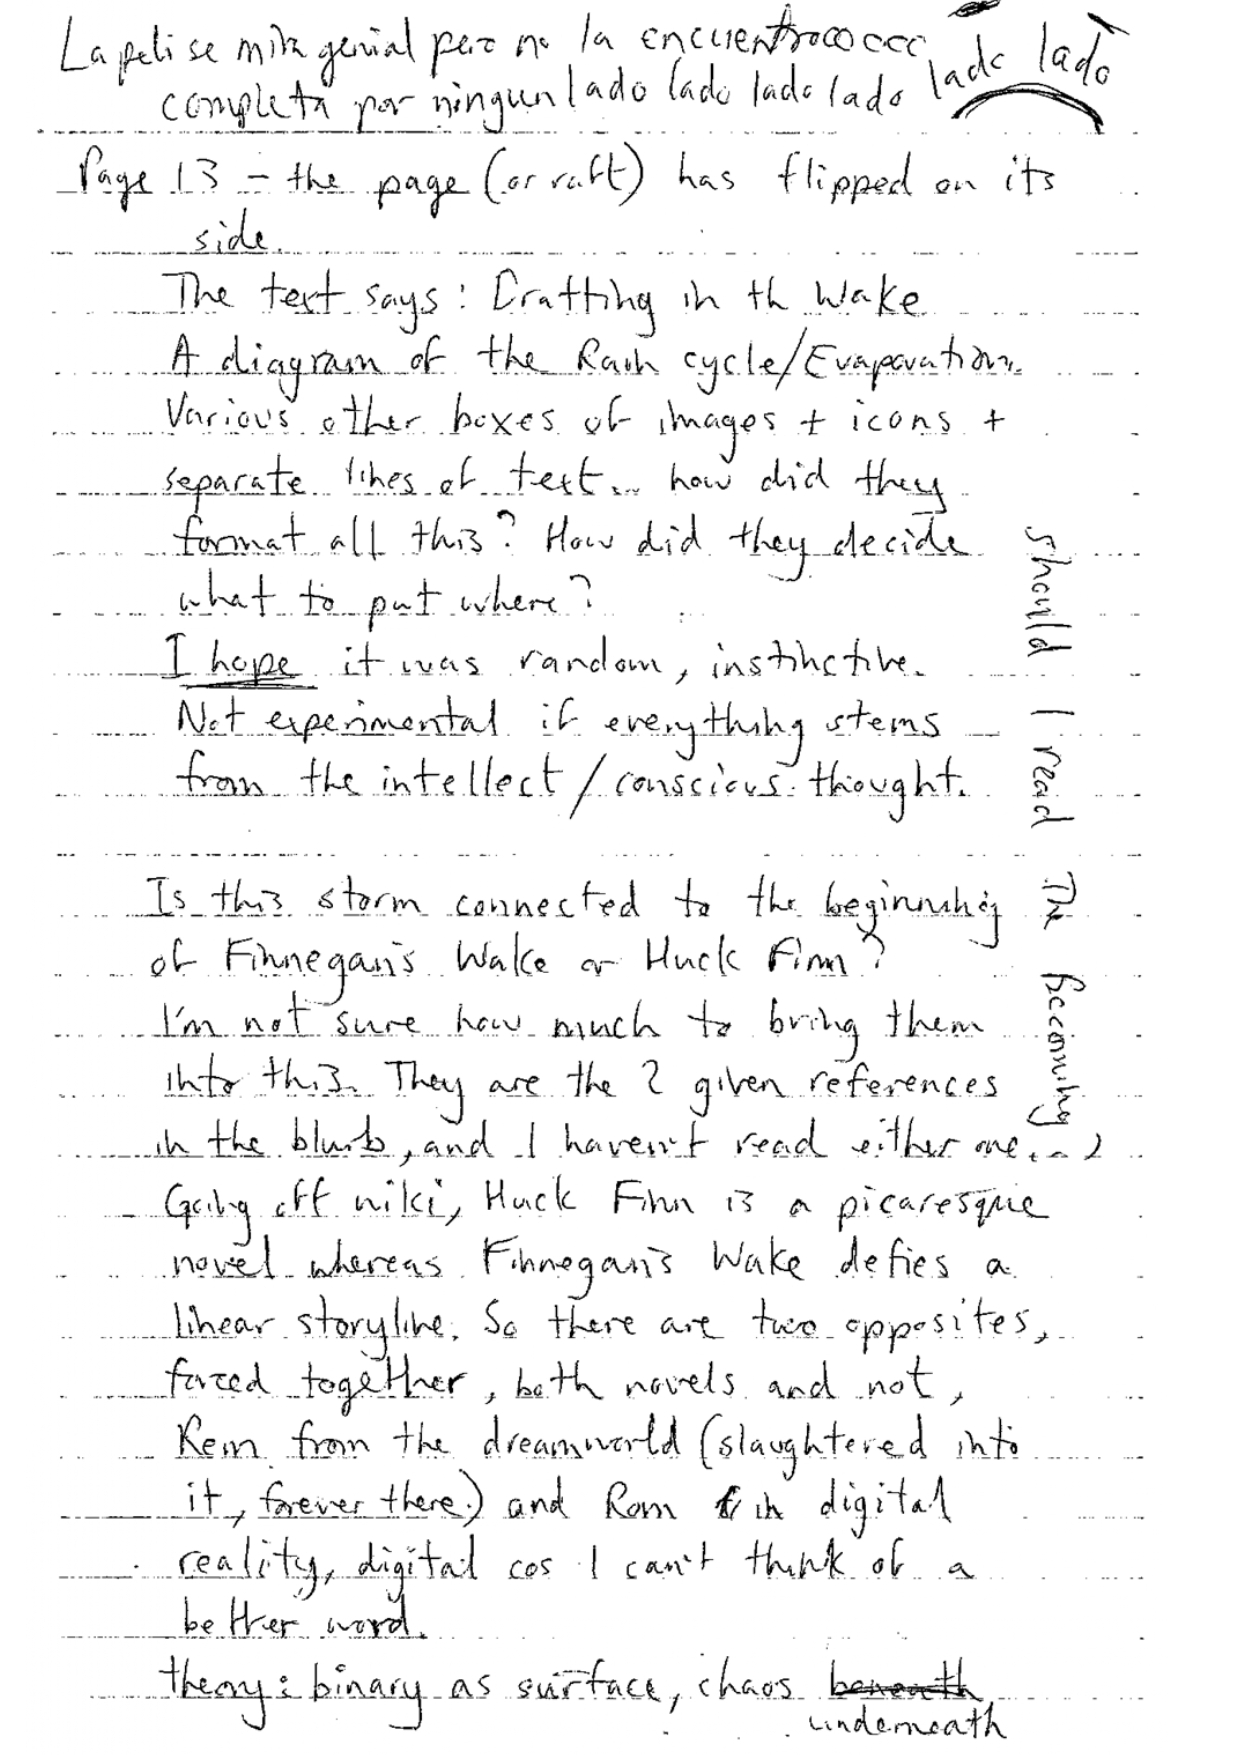 La peli se mira genial pero no la encuentrococcc
completa por ningun lado lado lado lado lado lado
Page 13 - the page (or raft) has flipped on its
side.
The text says: Drafting in th Wake
A diagram of the Rain cycle/Evaporation.
Various other boxes of images + icons +
separate lines of text... how did they
format all this? How did they decide
what to put where?
I hope it was random, instinctive.
Not experimental if everything stems
from the intellect / conscious thought.
Is this storm connected to the beginning
of Finnegan's Wake or Huck Finn?
I'm not sure how much to bring them
into this. They are the 2 given references
in the blurb, and I haven't read either one...
Going off wiki, Huck Finn is a picaresque
novel whereas Finnegan's Wake defies a
linear storyline. So there are two opposites,
forced together, both novels and not,
Rem from the dreamworld (slaughtered into
it, forever there.) and Rom in digital
reality, digital cos I can't think of a
better word.
theory: binary as surface, chaos beneath
underneath
should I read The Becoming